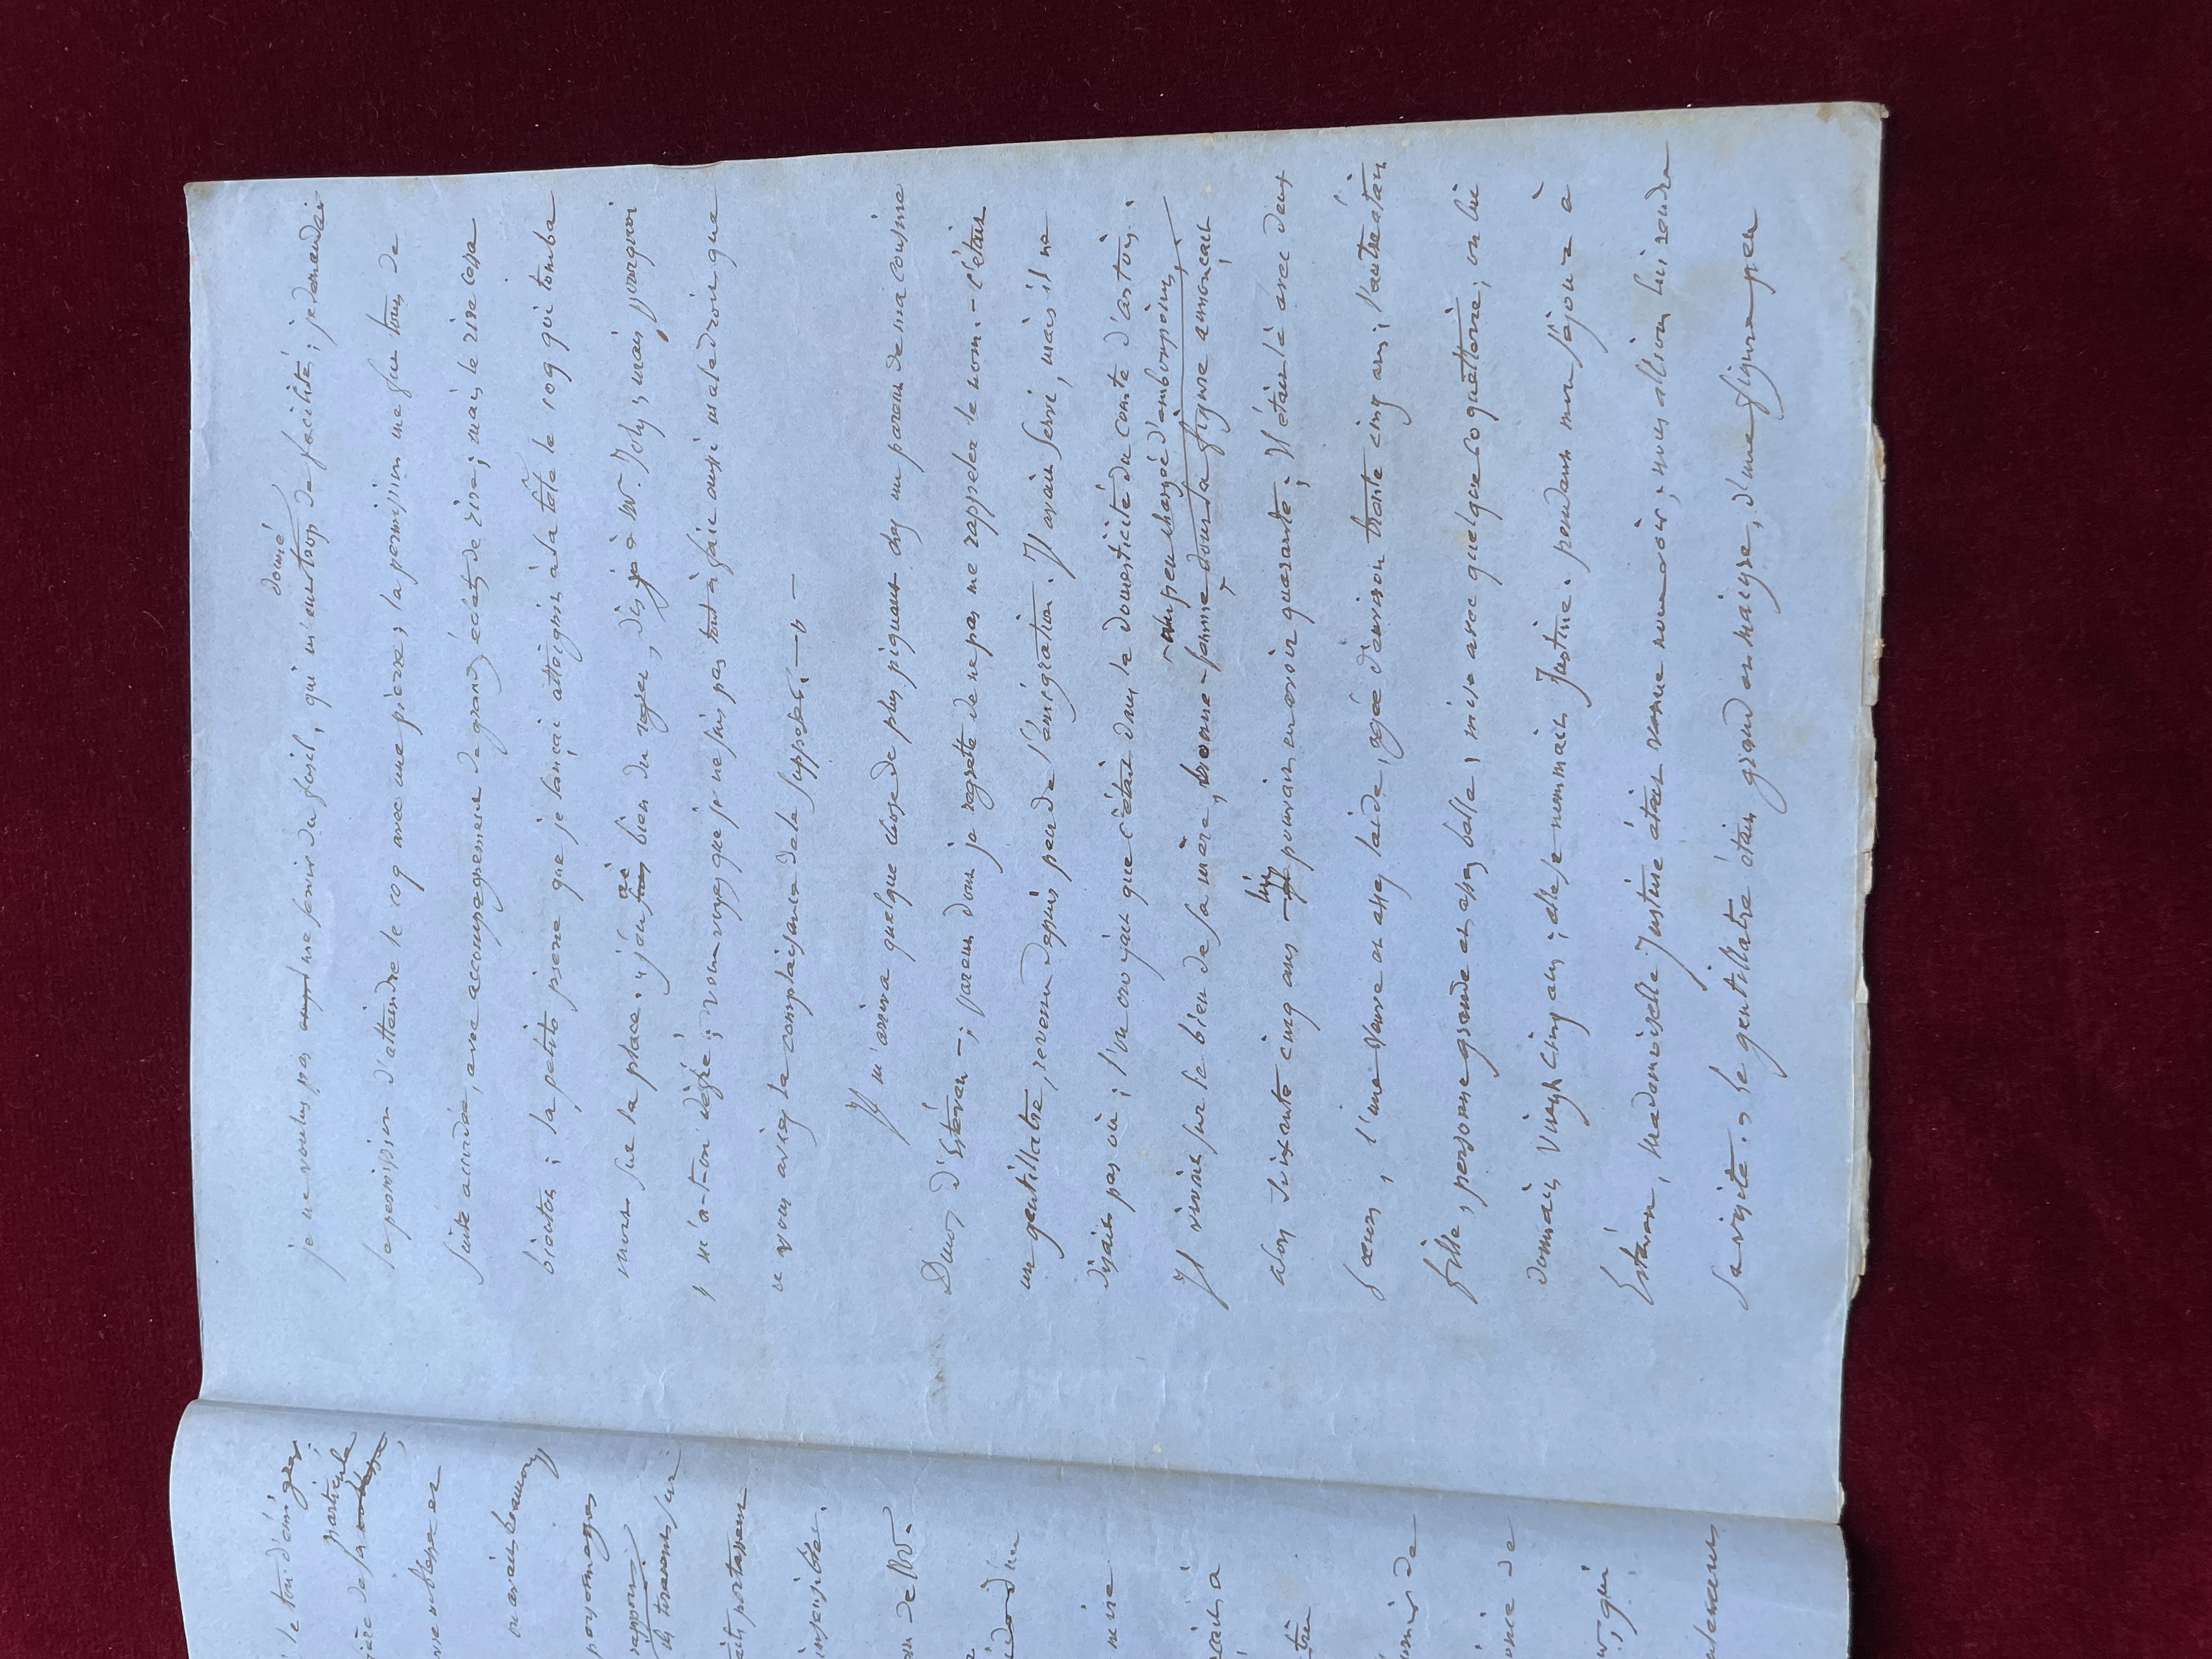 donné
je ne voulus pas me servir du fusil, qui m'eut trop de facilité; je demandai
la permission d'atteindre le coq avec une pierre, la permission me fut tout de
suite accordée, avec accompagnement de grands éclats de rire; mais le rire cessa
bientôt; la petite pierre que je lançai atteignit à la tête le coq qui tomba
mort sur la place. "j'en ai bien du regret, dis-je à Mr. Joly, mais pourquoi
" m'a-t-on défié; vous voyez que je ne suis pas tout à fait aussi maladroit que
" vous aviez la complaisance de le supposer. —" —
Il m'arriva quelque chose de plus piquant chez un parent de ma cousine
Duvos d'Estévan —; parent dont je regrette de ne pas me rappeler le nom. — c'était
un gentillatre, revenu depuis peu de l'émigration. Il avait servi, mais il ne
disait pas où; l'on croyait que c'était dans la domesticité du comte d'artois.
un peu chargée d'embonpoint,
Il vivait sur le bien de sa mère, bonne femme dont la figure annonçait
alors soixante cinq ans — lui pouvait en avoir quarante; Il était là avec deux
sœurs, l'une veuve et assez laide, agée d'environ trente cinq ans; l'autre était
fille, personne grande et assez belle, mise avec quelque coquetterie; on lui
donnait vingt cinq ans; elle se nommait Justine. pendant mon séjour à
Estévan, Mademoiselle Justine était venue nous voir; nous allions lui rendre
sa visite. Le gentillatre était grand et maigre, d'une figure peu
le ton d'émigrés
particule
noblesse et
on avait beau
personnages
rapport
insensible.